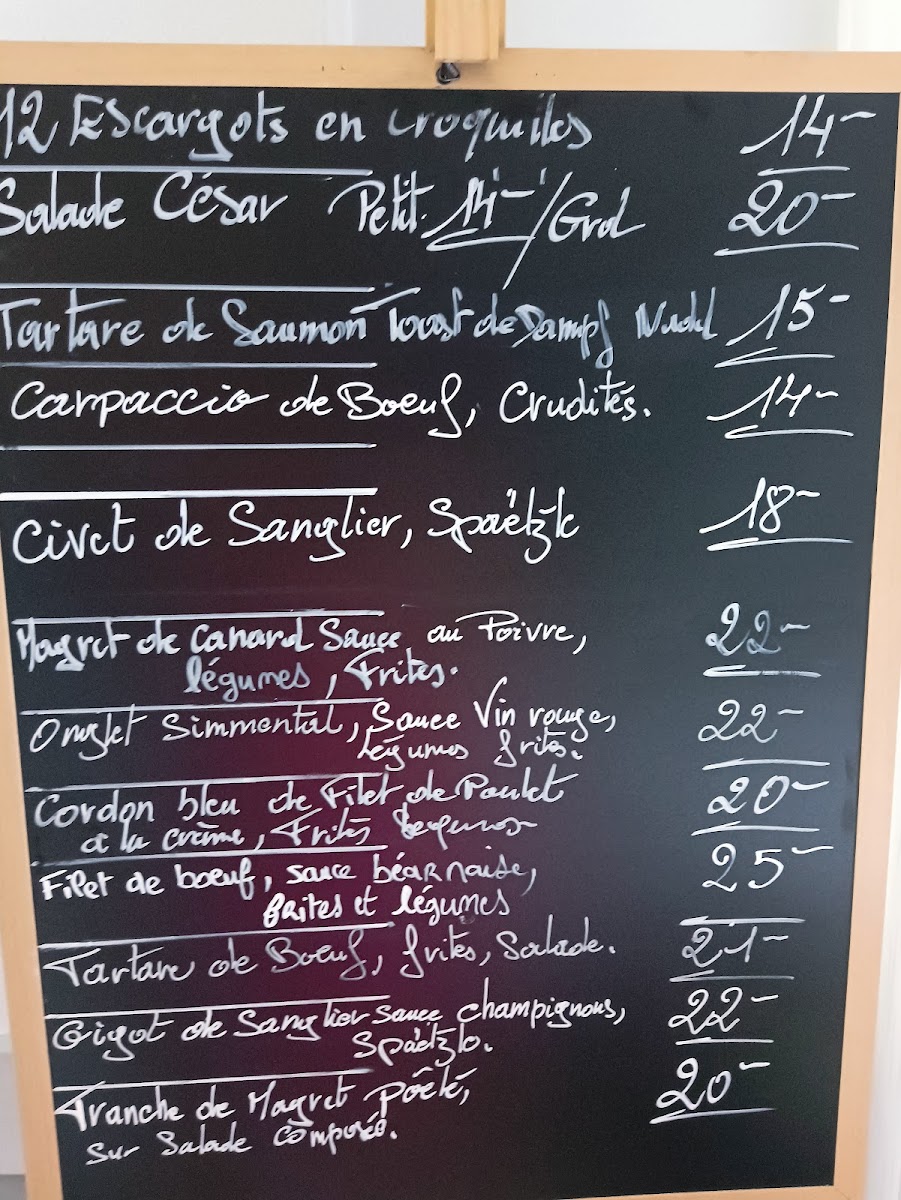 12 Escargots en Croquilles 14-
Salade César Petit. 14-/Grd 20-
Tartare de Saumon Toast de Dampf Nudel 15-
Carpaccio de Boeuf, Crudités. 14-
Civet de Sanglier, Spaëtzle 18-
Magret de Canard Sauce au Poivre, 22-
légumes, Frites.
Onglet Simmental, Sauce Vin rouge, 22-
Légumes frites.
Cordon bleu de Filet de Poulet 20-
à la crème, Frites légumes
Filet de boeuf, sauce béarnaise, 25-
frites et légumes
Tartare de Boeuf, frites, Salade. 21-
Gigot de Sanglier sauce champignons, 22-
Spaëtzle.
Tranche de Magret pôêlé, 20-
sur Salade composée.